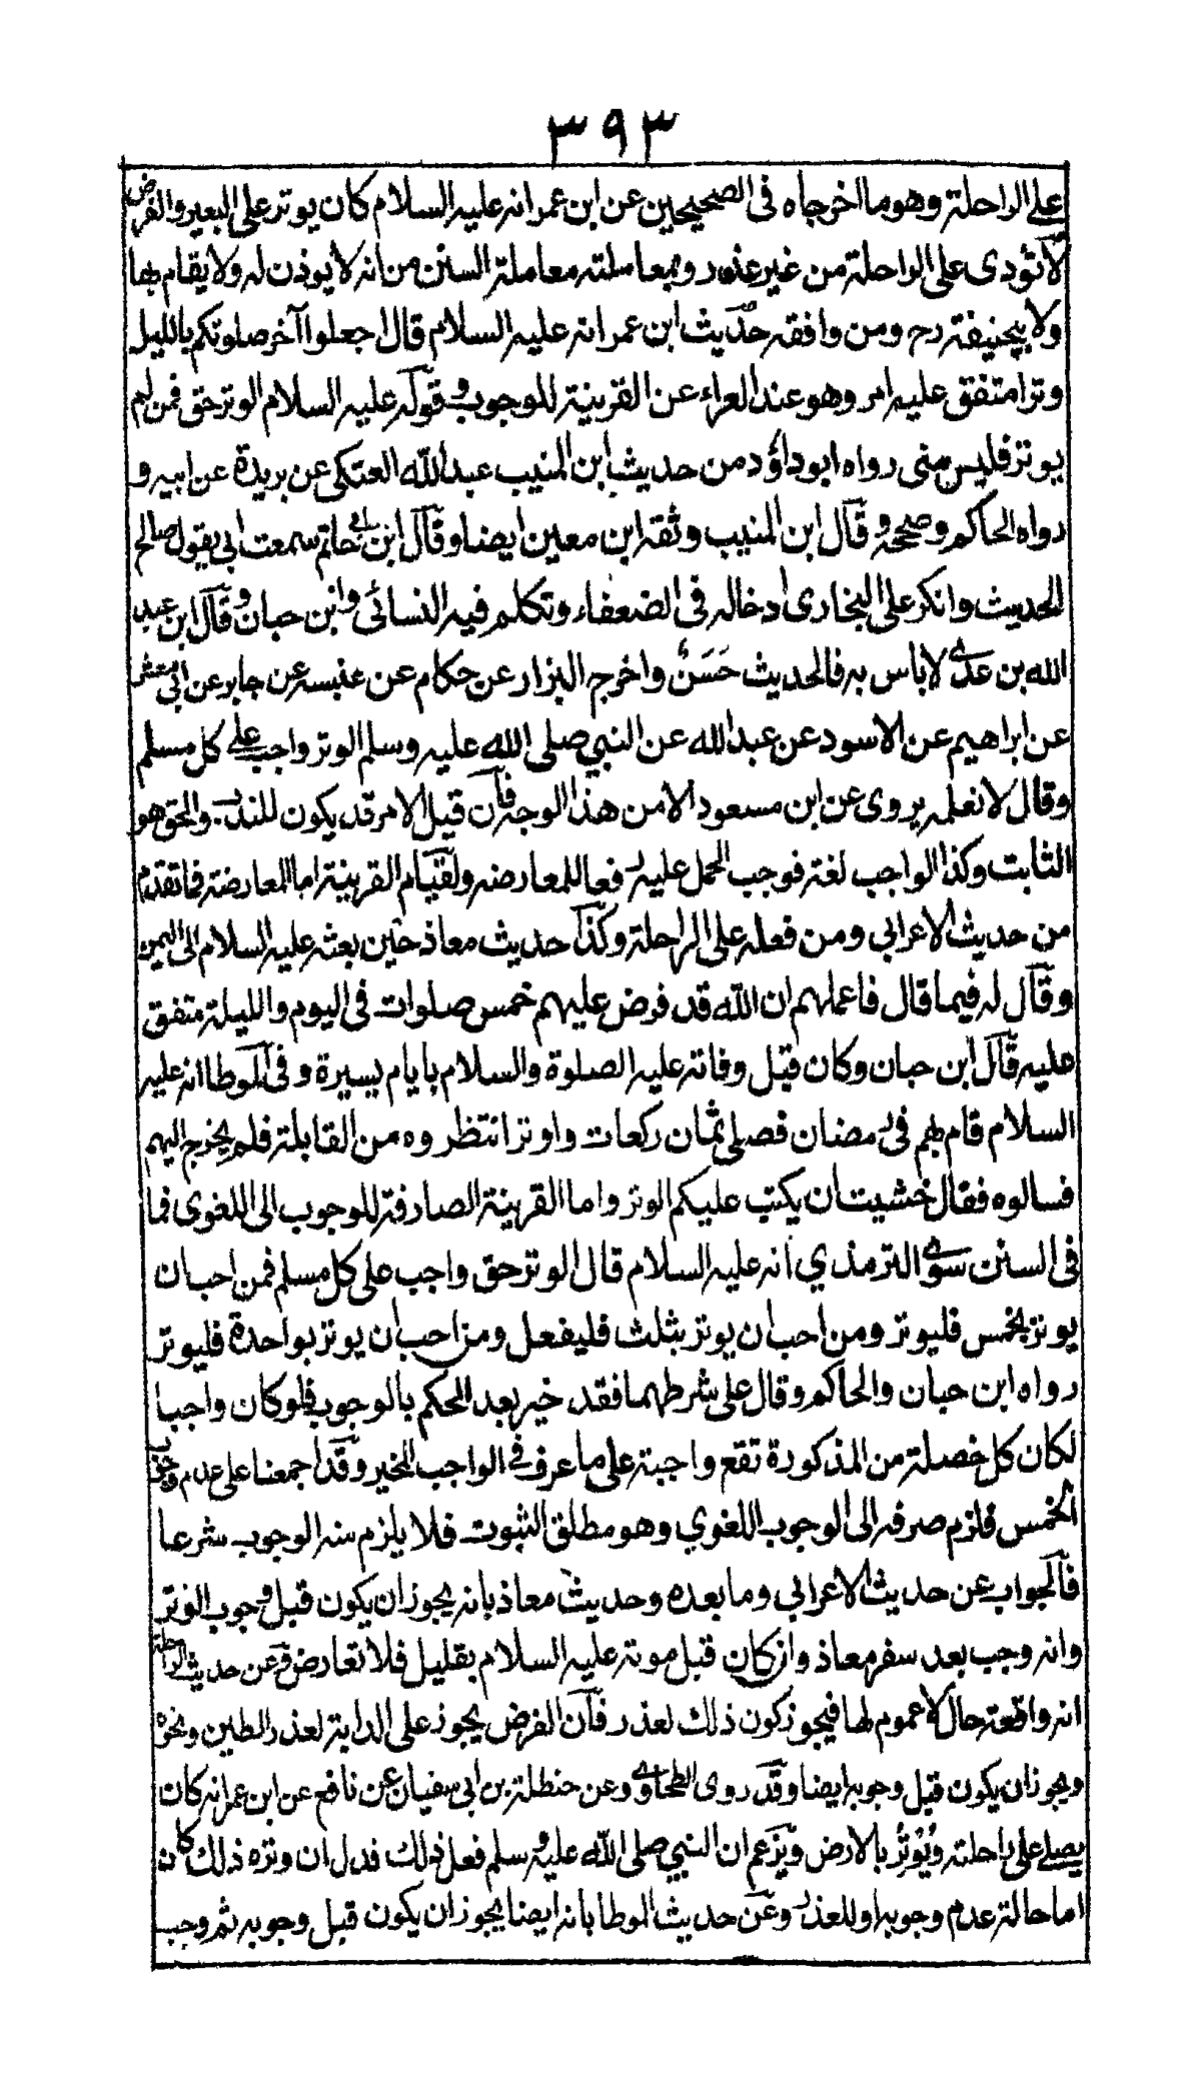 ٣٩٣
على الراحلة وهو ما اخرجاه فى الصحيحين عن ابن عمر انه عليه السلام كان يوتر على البعير والفرض
لا تؤدى على الراحلة من غير عذر وبمعاملته معاملة السنن من انه لا يوذن له ولا يقام بها
ولا بيحنيفة رح ومن وافقه حديث ابن عمر انه عليه السلام قال اجعلوا آخر صلوتكم بالليل
وترا متفق عليه امر وهو عند العراء عن القرينة للوجوب وقوله عليه السلام الوتر حق فمن لم
يوتر فليس منى رواه ابو داؤد من حديث ابن المنيب عبد الله العتكى عن بريدة عن ابيه و
رواه الحاكم وصححه وقال ابن المنيب وثقه ابن معين ايضا وقال ابن ابى حاتم سمعت ابى يقول صالح
الحديث وانكر على البخارى ادخاله فى الضعفاء وتكلم فيه النسائى وابن حبان وقال ابن عبد
الله بن عدى لا باس به فالحديث حَسَنٌ واخرج البزار عن حكام عن عنبسه عن جابر عن ابى معشر
عن ابراهيم عن الاسود عن عبد الله عن النبي صلى الله عليه وسلم الوتر واجب على كل مسلم
وقال لا نعلمه يروى عن ابن مسعود الا من هذا الوجه فان قيل الامر قد يكون للندب والحق هو
الثابت وكذا الواجب لغة فوجب الحمل عليه دفعا للمعارضه ولقيام القرينة اما المعارضة فما تقدم
من حديث الاعرابي ومن فعله على الراحلة وكذا حديث معاذ حين بعثه عليه السلام الى اليمن
وقال له فيما قال فاعلمهم ان الله قد فرض عليهم خمس صلوات فى اليوم والليلة متفق
عليه قال ابن حبان وكان قبل وفاته عليه الصلوة والسلام بايام يسيرة وفى الموطا انه عليه
السلام قام بهم فى رمضان فصلى ثمان ركعات واوتر انتظروه من القابلة فلم يخرج اليهم
فسالوه فقال خشيت ان يكتب عليكم الوتر واما القرينة الصارفة للوجوب الى اللغوى فما
فى السنن سوى الترمذي انه عليه السلام قال الوتر حق واجب على كل مسلم فمن احب ان
يوتر بخمس فليوتر ومن احب ان يوتر بثلث فليفعل ومن احب ان يوتر بواحدة فليوتر
رواه ابن حبان والحاكم وقال على شرطهما فقد خير بعد الحكم بالوجوب فلو كان واجبا
لكان كل خصلة من المذكورة تقع واجبة على ما عرف فى الواجب المخير وقد اجمعنا على عدم وجوب
الخمس فلزم صرفه الى الوجوب اللغوي وهو مطلق الثبوت فلا يلزم منه الوجوب شرعا
فالجواب عن حديث الاعرابي وما بعده وحديث معاذ بانه يجوز ان يكون قبل وجوب الوتر
وانه وجب بعد سفر معاذ وان كان قبل موته عليه السلام بقليل فلا تعارض وعن حديث الراحلة
انه واقعة حال لا عموم لها فيجوز كون ذلك لعذر فان الفرض يجوز على الدابة لعذر الطين ونحوه
ويجوز ان يكون قبل وجوبه ايضا وقد روى الطحاوى وعن حنظلة بن ابى سفيان عن نافع عن ابن عمر انه كان
يصلى على راحلته ويُوْتُر بالارض ويزعم ان النبي صلى الله عليه وسلم فعل ذلك فدل ان وتره ذلك كان
اما حالة عدم وجوبه او للعذر وعن حديث الموطا بانه ايضا يجوز ان يكون قبل وجوبه ثم وجب